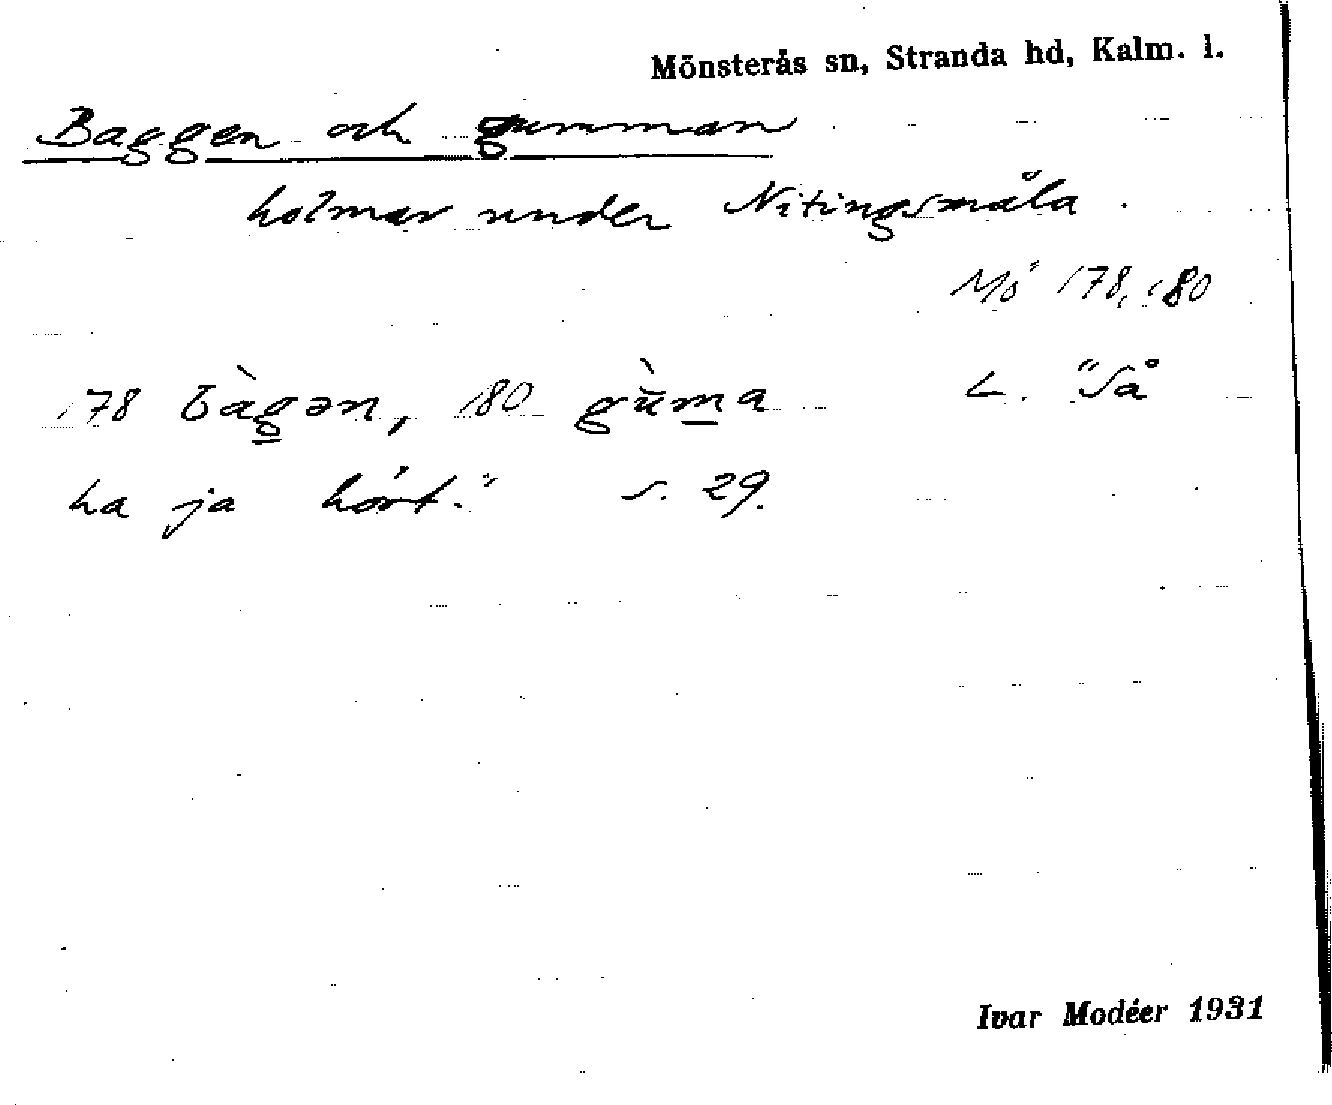 Mönsterås sn, Stranda hd, Kalm. l.
Baggen och gumman
holmar under Nitingsmåla.
Mö 178, 180
178 bàg̲ən, 180 gùm̲a L. "Så
ha ja hört." s. 29.
Ivar Modéer 1931